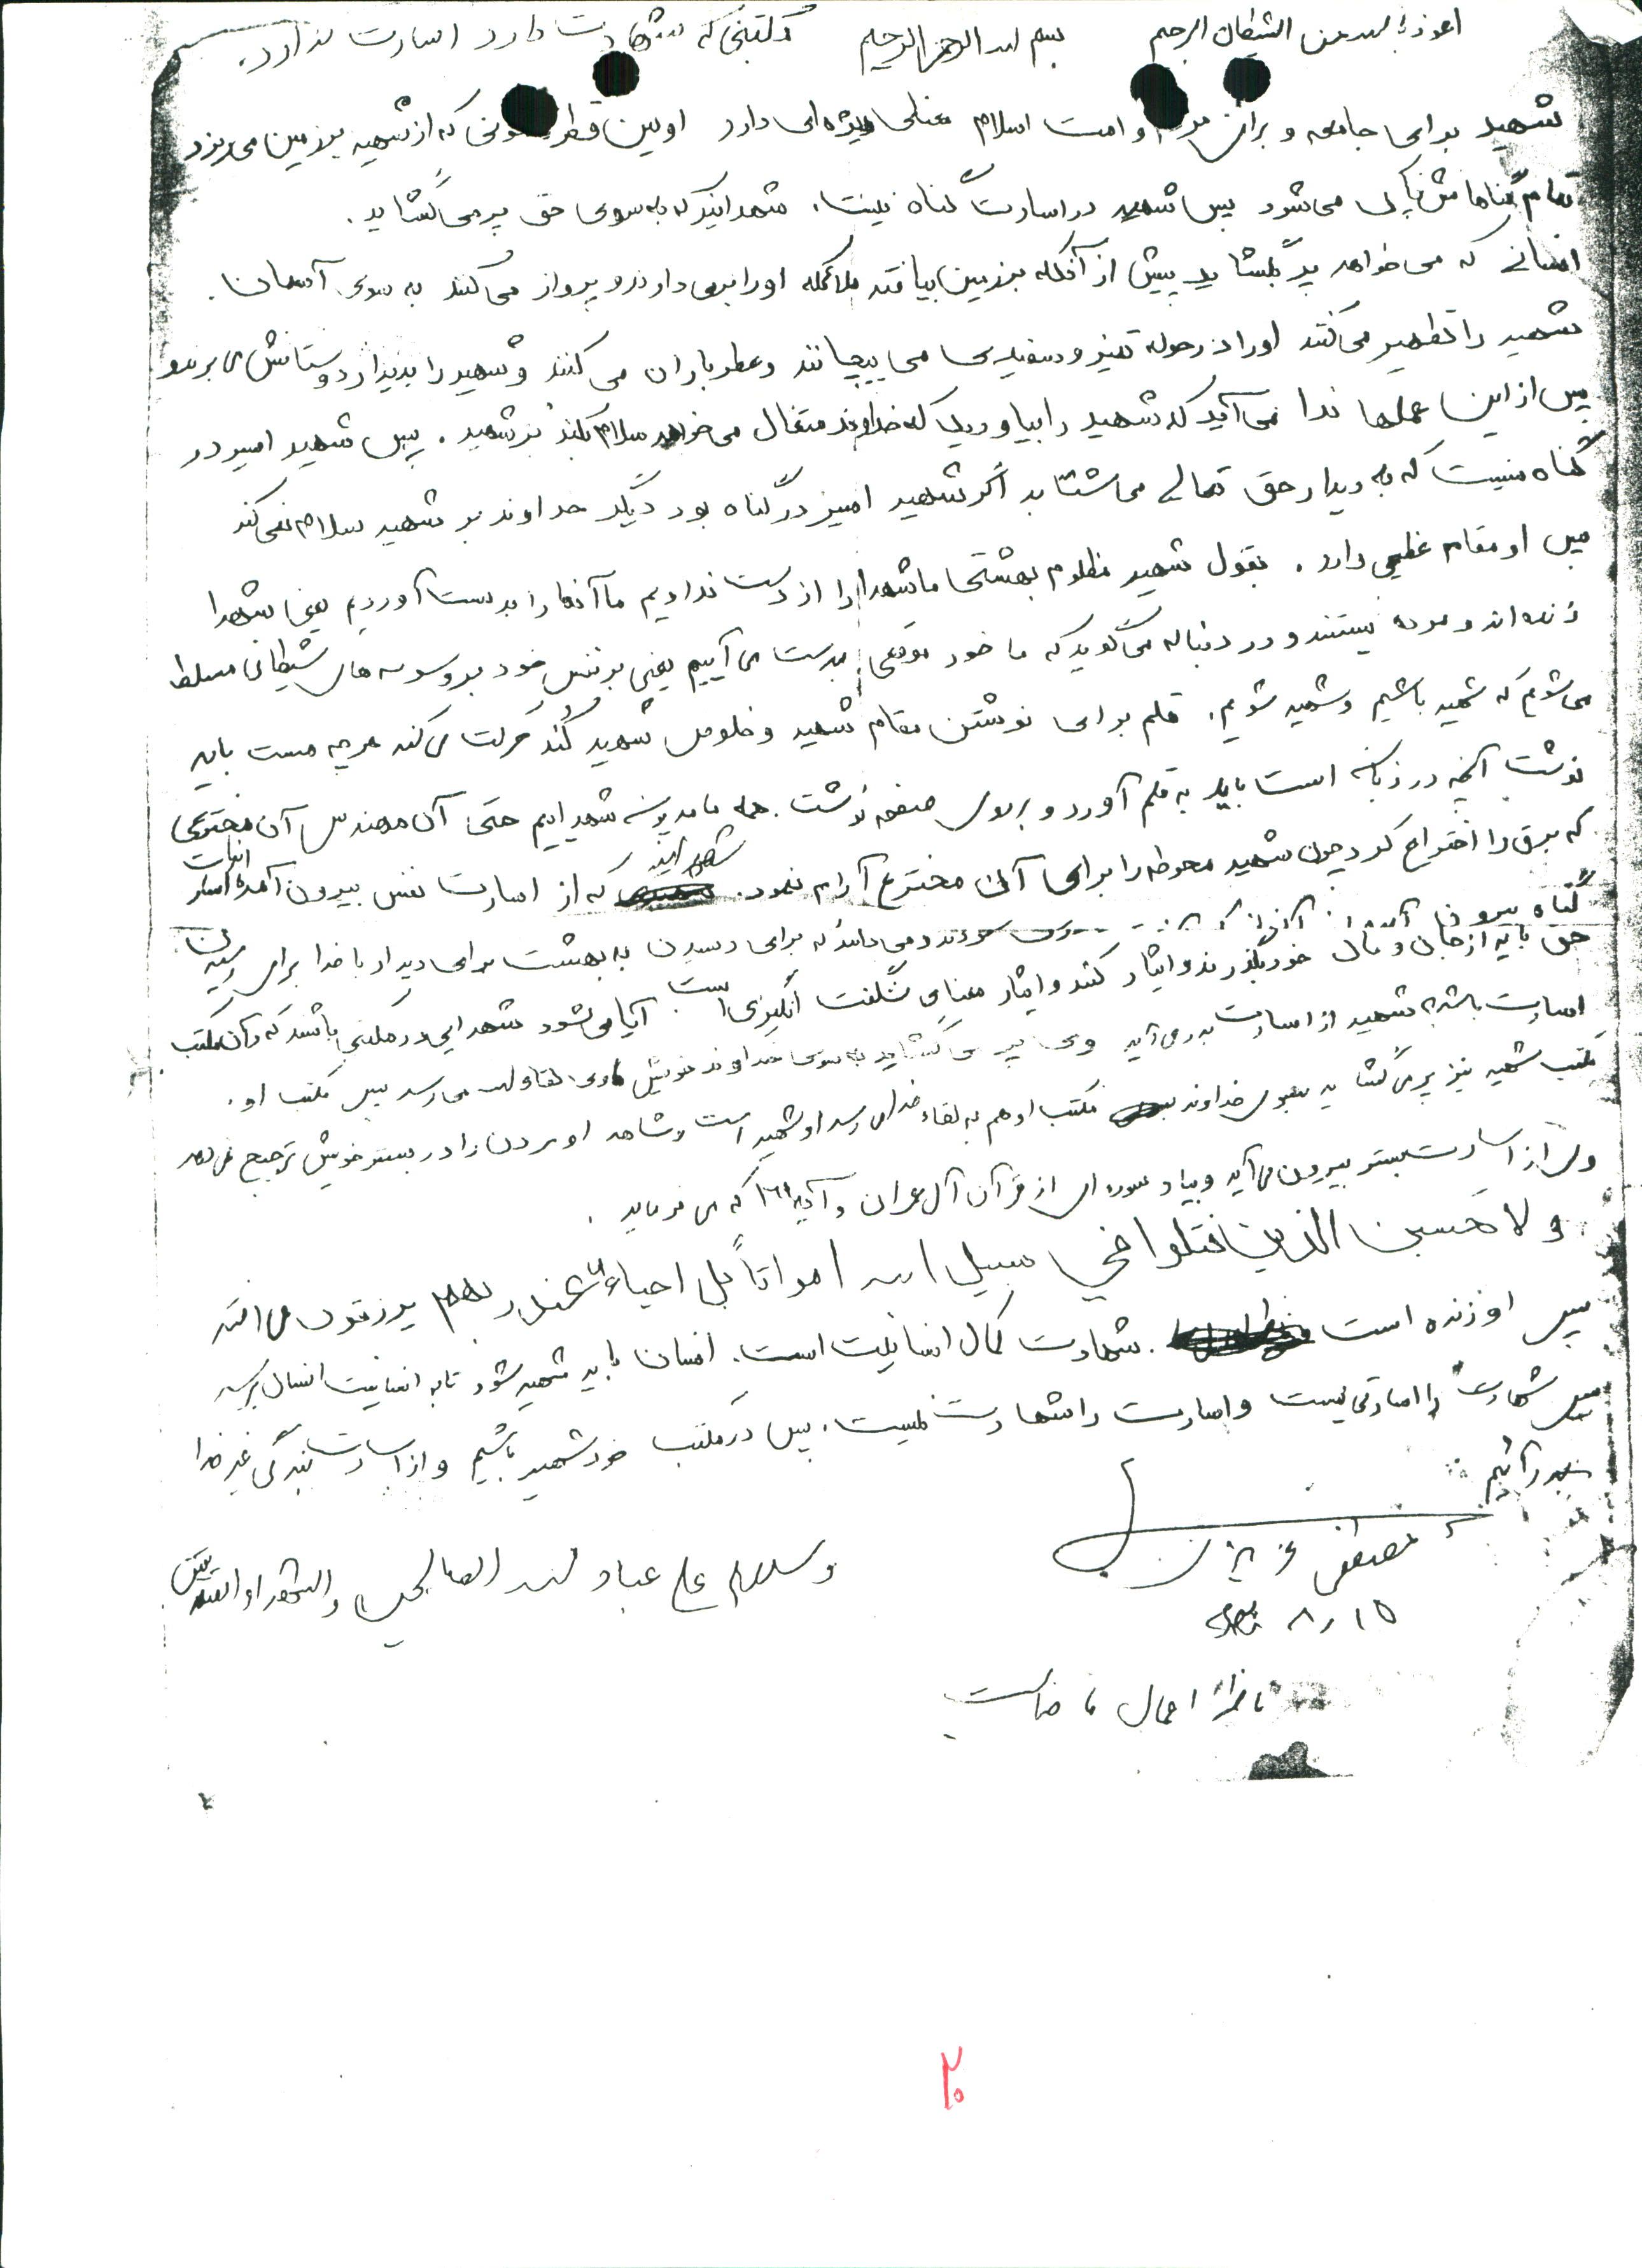 اعوذ بالله من الشیطان الرجیم    بسم الله الرحمن الرحیم    مکتبی که شهادت دارد اسارت ندارد.
شهید برای جامعه و برای و امت اسلام معنای ویژه‌ای دارد اولین قطره خونی که از شهید برزمین می‌ریزد
تمام گناهانش پاک می‌شود پس شهید در اسارت گناه نیست. شهدایند که به سوی حق پر می‌گشاید.
انسانی که می‌خواهد پر بگشاید پیش از آنکه برزمین بیافتد ملائکه او را برمی‌دارند و پرواز می‌کنند به سوی آسمان.
شهید را تطهیر می‌کنند او را در حوله تمیز و سفیدی می‌پیچانند و عطرباران می‌کنند و شهید را بدیدار دوستانش می‌برند
پس از این عملها ندا می‌آید که شهید را بیاورید که خداوند متعال می‌خواهد سلام بکند بر شهید. پس شهید اسیر در
گناه نیست که به دیدار حق تعالی می‌شتابد اگر شهید اسیر در گناه بود دیگر خداوند بر شهید سلام نمی‌کند
پس او مقام عظیمی دارد. بقول شهید مظلوم بهشتی ما شهدا را از دست ندادیم ما آنها را بدست آوردیم یعنی شهدا
زنده‌اند و مرده نیستند و در دنباله می‌گوید که ما خود موقعی بدست می‌آییم یعنی بر نفس خود بر وسوسه‌های شیطانی مسلط
می‌شویم که شهید باشیم و شهید شویم. قلم برای نوشتن مقام شهید و خلوص شهید کُند حرکت می‌کند هرچه هست باید
نوشت آنچه در زبان است باید به قلم آورد و بروی صفحه نوشت. همه ما مدیون شهداییم حتی آن مهندس آن مخترعی
که برق را اختراع کرد چون شهید محوطه را برای آن مخترع آرام نمود. شهدایند که از اسارت نفس بیرون آمده‌اند
گناه بیرون می‌دانند که برای رسیدن به بهشت برای دیدار با خدا برای رسیدن
حق باید از جان و مال خود بگذرند و ایثار کنند و ایثار معنای شگفت انگیزی است. آیا می‌شود شهدایی در مکتبی باشند که در آن مکتب
اسارت باشد شهید از اسارت بدر می‌آید وی پر می‌گشاید به سوی خداوند خویش لقاءالله می‌رسد پس مکتب او.
مکتب شهید نیز پر می‌گشاید بسوی خداوند مکتب او هم به لقاء خدا می‌رسد او شهید است و شاهد او مردن را در بستر خویش ترجیح نمی‌دهد
وی از اسارت بستر بیرون می‌آید و بیاد سوره‌ای از قرآن آل عمران و آیه ۱۶۹ که می‌فرماید.
و لا تحسبن الذین قتلوا فی سبیل الله امواتاً بل احیاء عند ربهم یرزقون می‌افتد
پس او زنده است. شهادت کمال انسانیت است. انسان باید شهید شود تا به انسانیت انسان برسد
پس شهادت را اسارتی نیست و اسارت را شهادت نیست. پس در مکتب خود شهید باشیم و از اسارت بندگی غیر خدا
بدر آئیم
وسلام علی عباد الله الصالحین و الشهداء و الصدیقین
مصطفی عزیزی
۱۵ ر ۸
ناظر اعمال ما خداست
۲۰